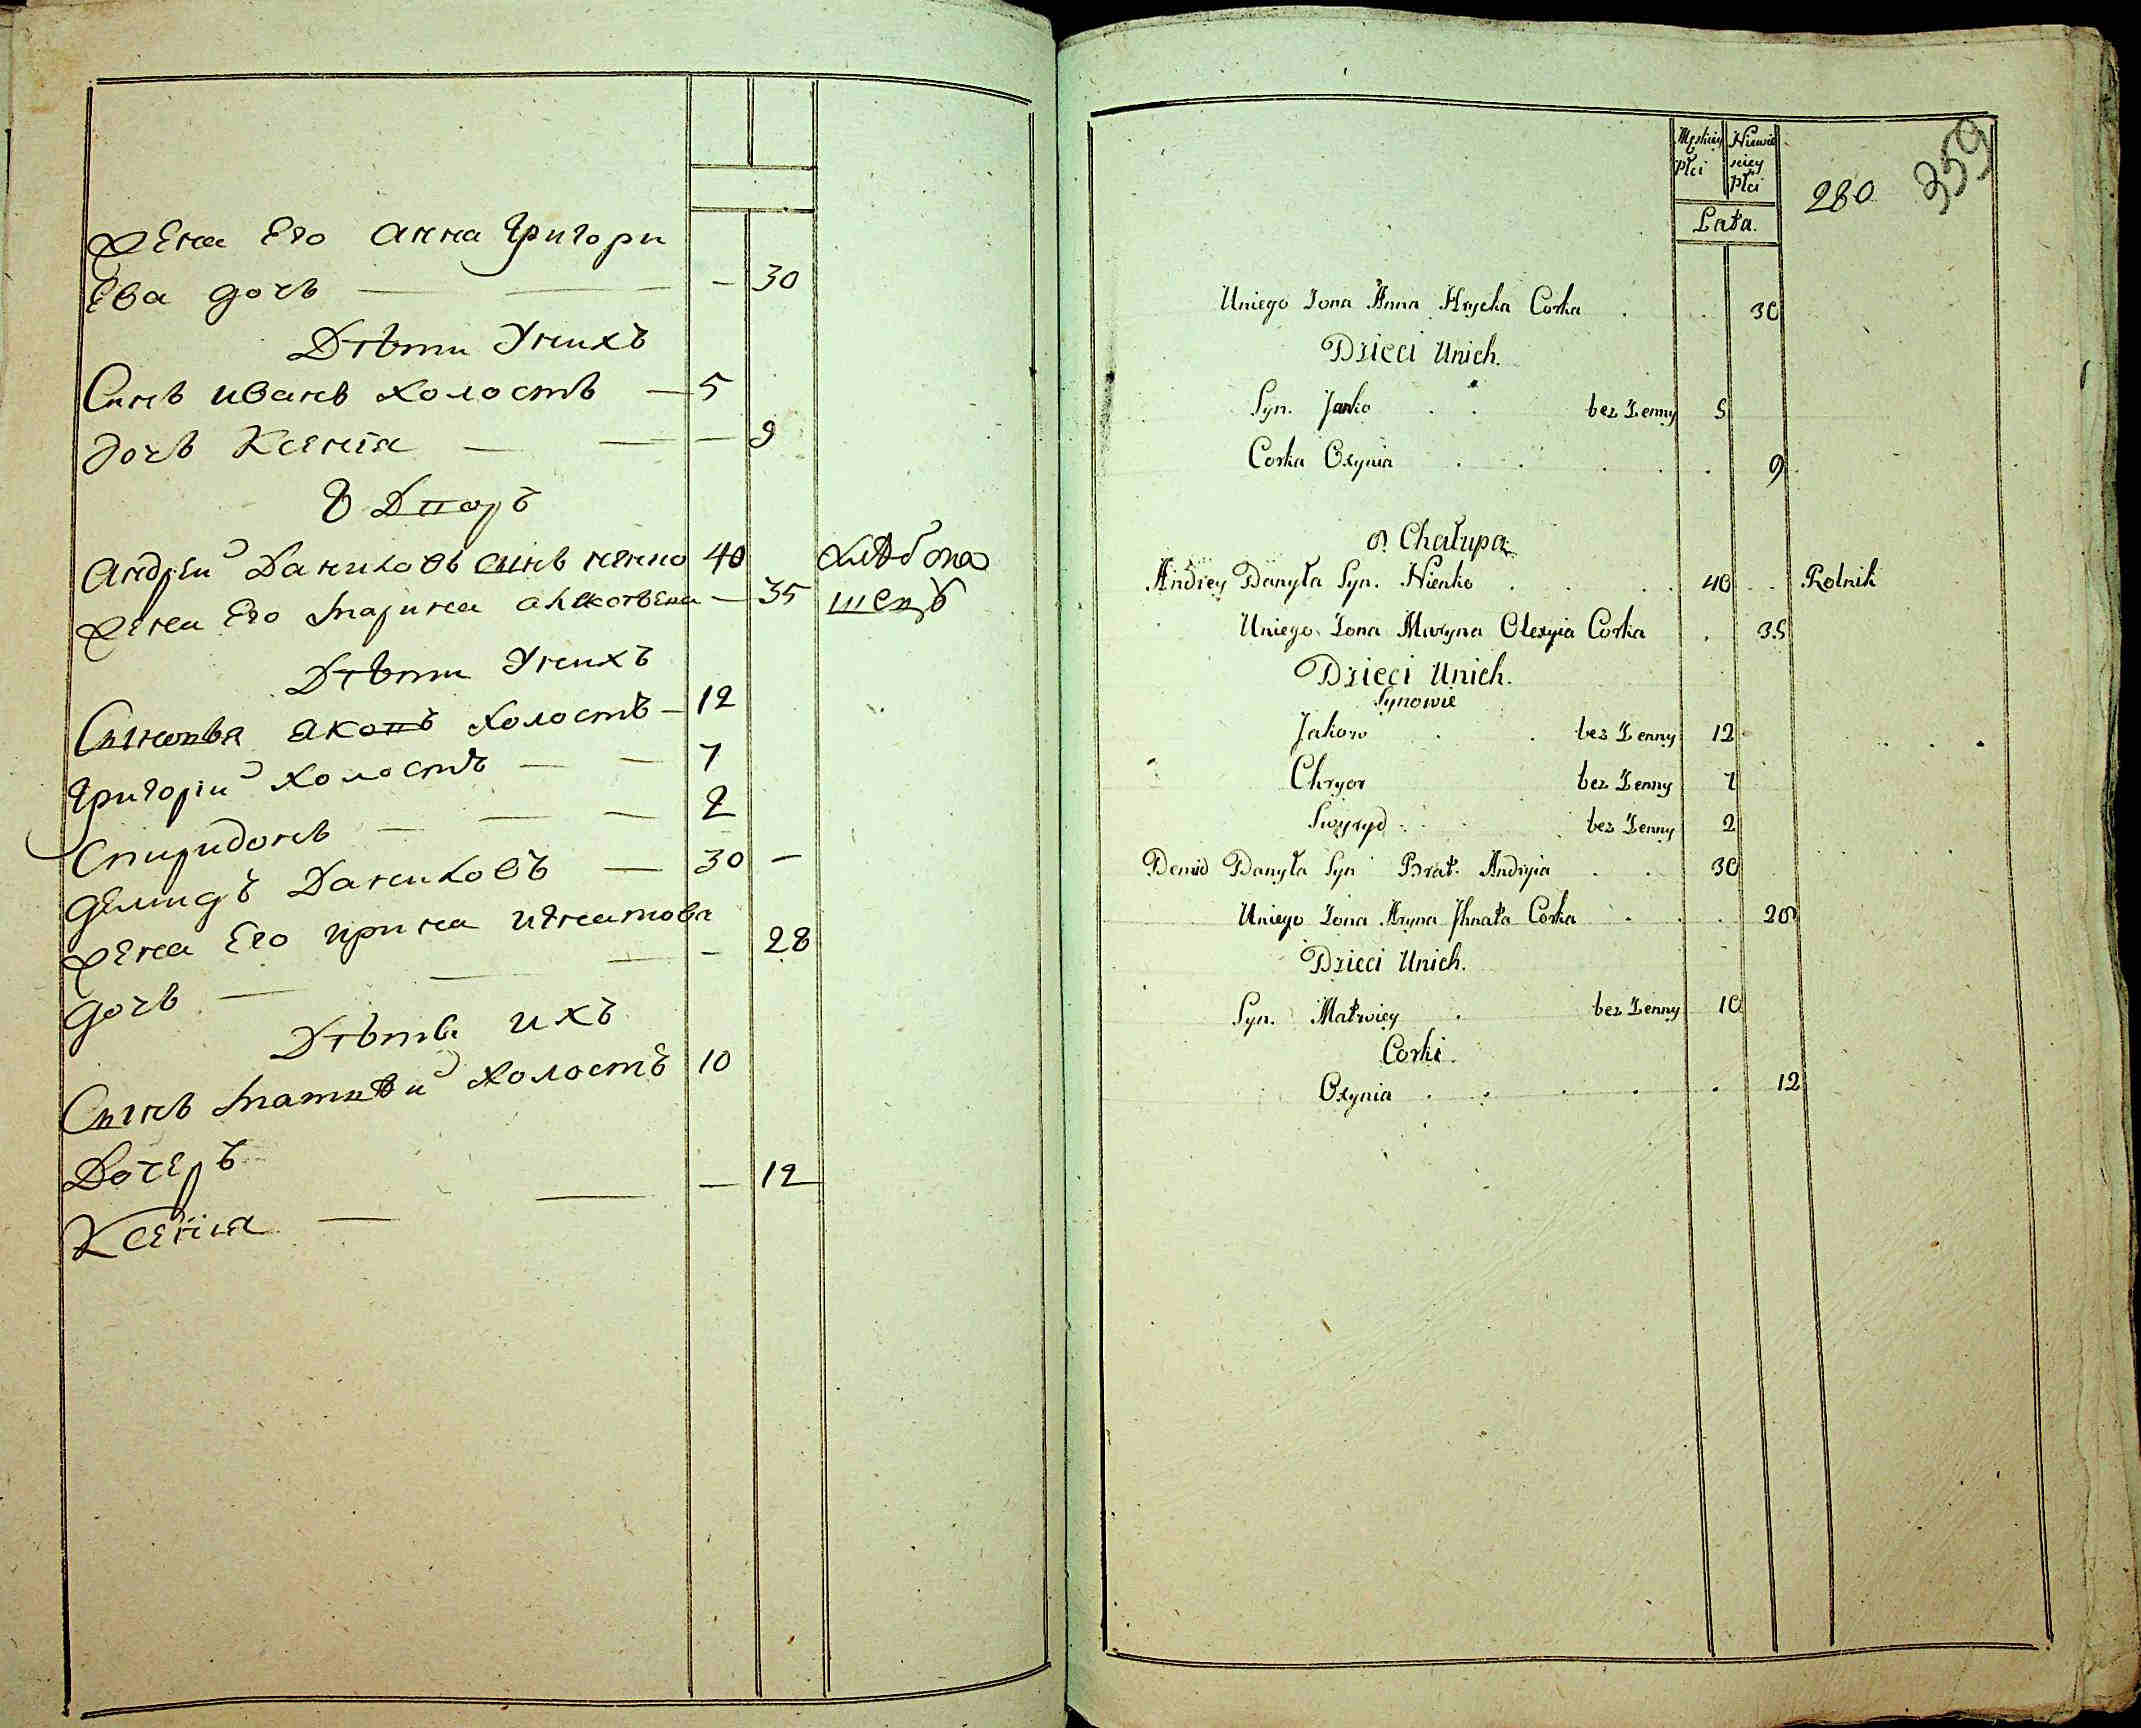 Жена Его Анна Григори
Ева дочь — — — 30
Дѣти Унихъ
Синъ иванъ холостъ — 5
дочь Ксенія — — — 9
8 Дворъ
Андрей Даниловъ синъ 40 хлѣбопа
Жена Его Марина — 35 шецъ
Дѣти Унихъ
Сыновья Яковъ холостъ — 12
Григорій холостъ — — 7
Спиридонъ — — — 2
Демидъ Даниловъ — 30 —
Жена Его Ирина Игнатова
дочь — — — — 28
Дѣти ихъ
Сынъ Матвѣй холостъ 10
Дочерѣ
Ксенія — — — 12
Męskiey Płci
Niewieściey Płci
Lata.
280
359
Uniego Zona Anna Hryćka Corka . . 30
Dzieci Unich.
Syn. Janko . . bez Zenny 5
Corka Oxynia . . . . . 9
8. Chałupa
Andrey Danyła Syn. Nienko . . . 40 . . Rolnik
Uniego Zona Maryna Olexyia Corka . 35
Dzieci Unich.
Synowie
Jakow . . bez Zenny 12
Chryor bez Zenny 7
Swyryd . . . bez Zenny 2
Demid Danyła Syn Brat. Andryia . . 30
Uniego Zona Aryna Jhnata Corka . . . 28
Dzieci Unich.
Syn. Matwiey . bez Zenny 10
Corki.
Oxynia . . . . . 12